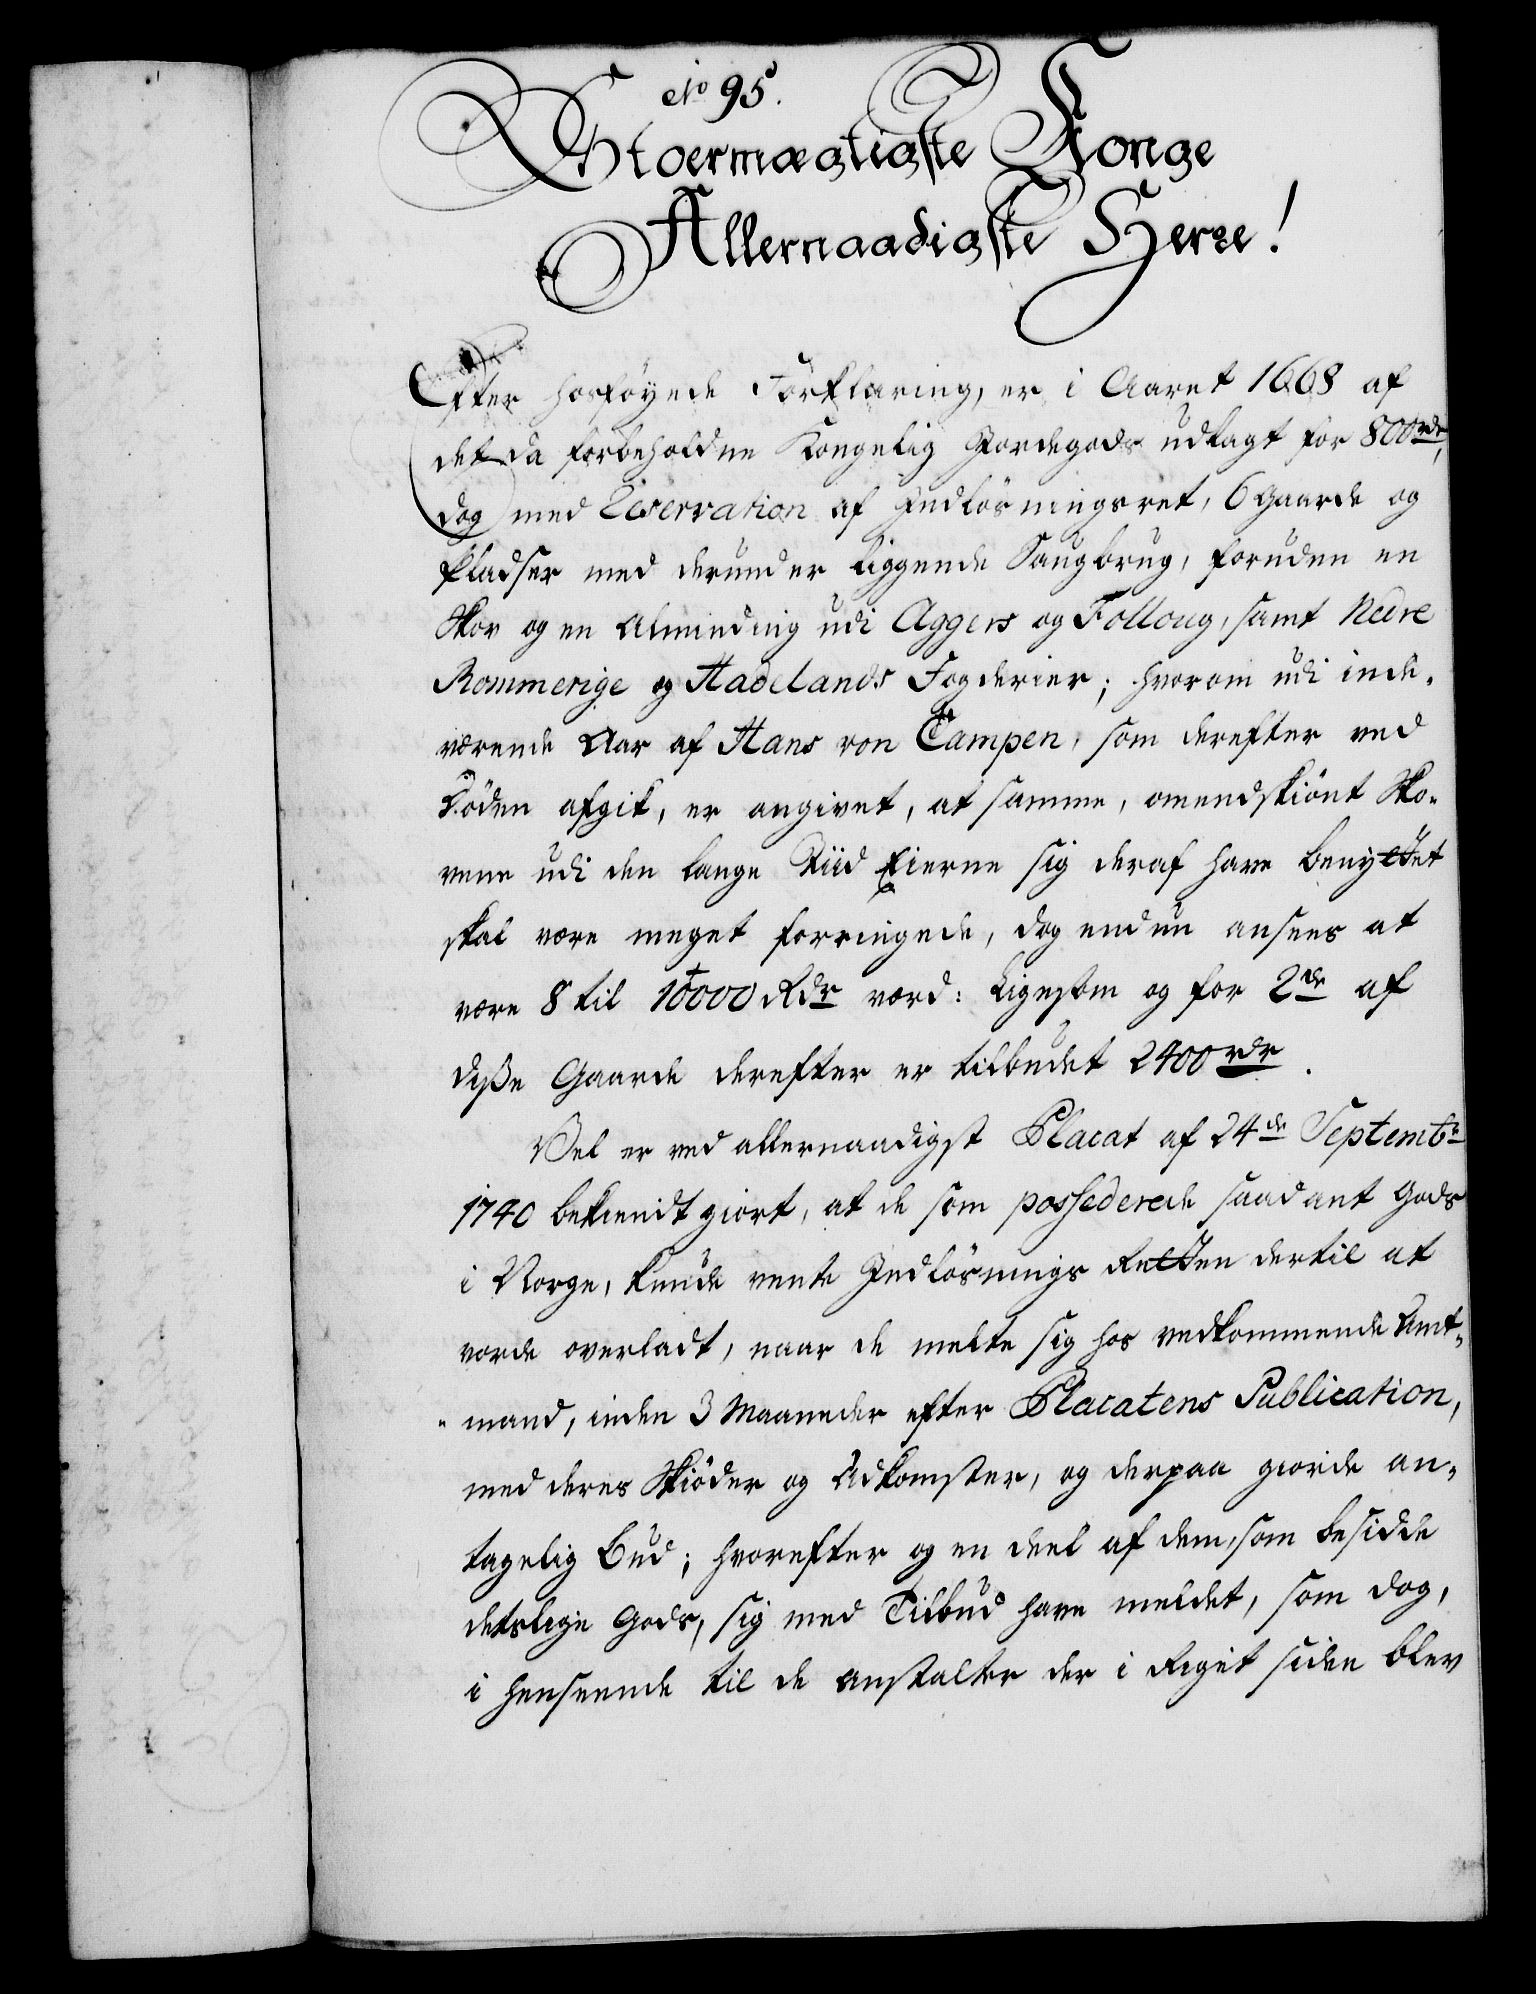 No 95.
Stoermægtigste Konge
Allernaadigste Herre!
Efter hosføyede Forklaring, er i Aaret 1668 af
det da forbeholdne Kongelig Jordegods udlagt for 800 rdr,
dog med Reservation af Indløsningsret, 6 Gaarde og
Pladser med derunder liggende Saugbrug, foruden en
Skov og en Alminding udi Aggers og Folloug, samt Nedre
Rommerige og Hadelands Fogderier; hvorom udi inde-
værende Aar af Hans von Campen, som derefter ved
Døden afgik, er angivet, at samme, omendskiönt Sko-
vene udi den lange Tiid Eierne sig deraf have benyttet
skal være meget forringede, dog endnu ansees at
være 8 til 10000 Rdr værd: Ligesom og for 2de af
diße Gaarde derefter er tilbudet 2400 rdr.
Vel er ved allernaadigst Placat af 24de Septembr
1740 bekiendtgiort, at de som possederede saadant Gods
i Norge, kunde vente Indløsnings Retten dertil at
vorde overladt, naar de meldte sig hos vedkommende Amt-
mand, inden 3 Maaneder efter Placatens Publication,
med deres Skiöder og Adkomster, og derpaa giorde an-
tagelig Bud; hvorefter og en deel af dem, som besidde
detslige Gods, sig med Tilbud have meldet, som dog,
i henseende til de Anstalter der i Riget siden blev